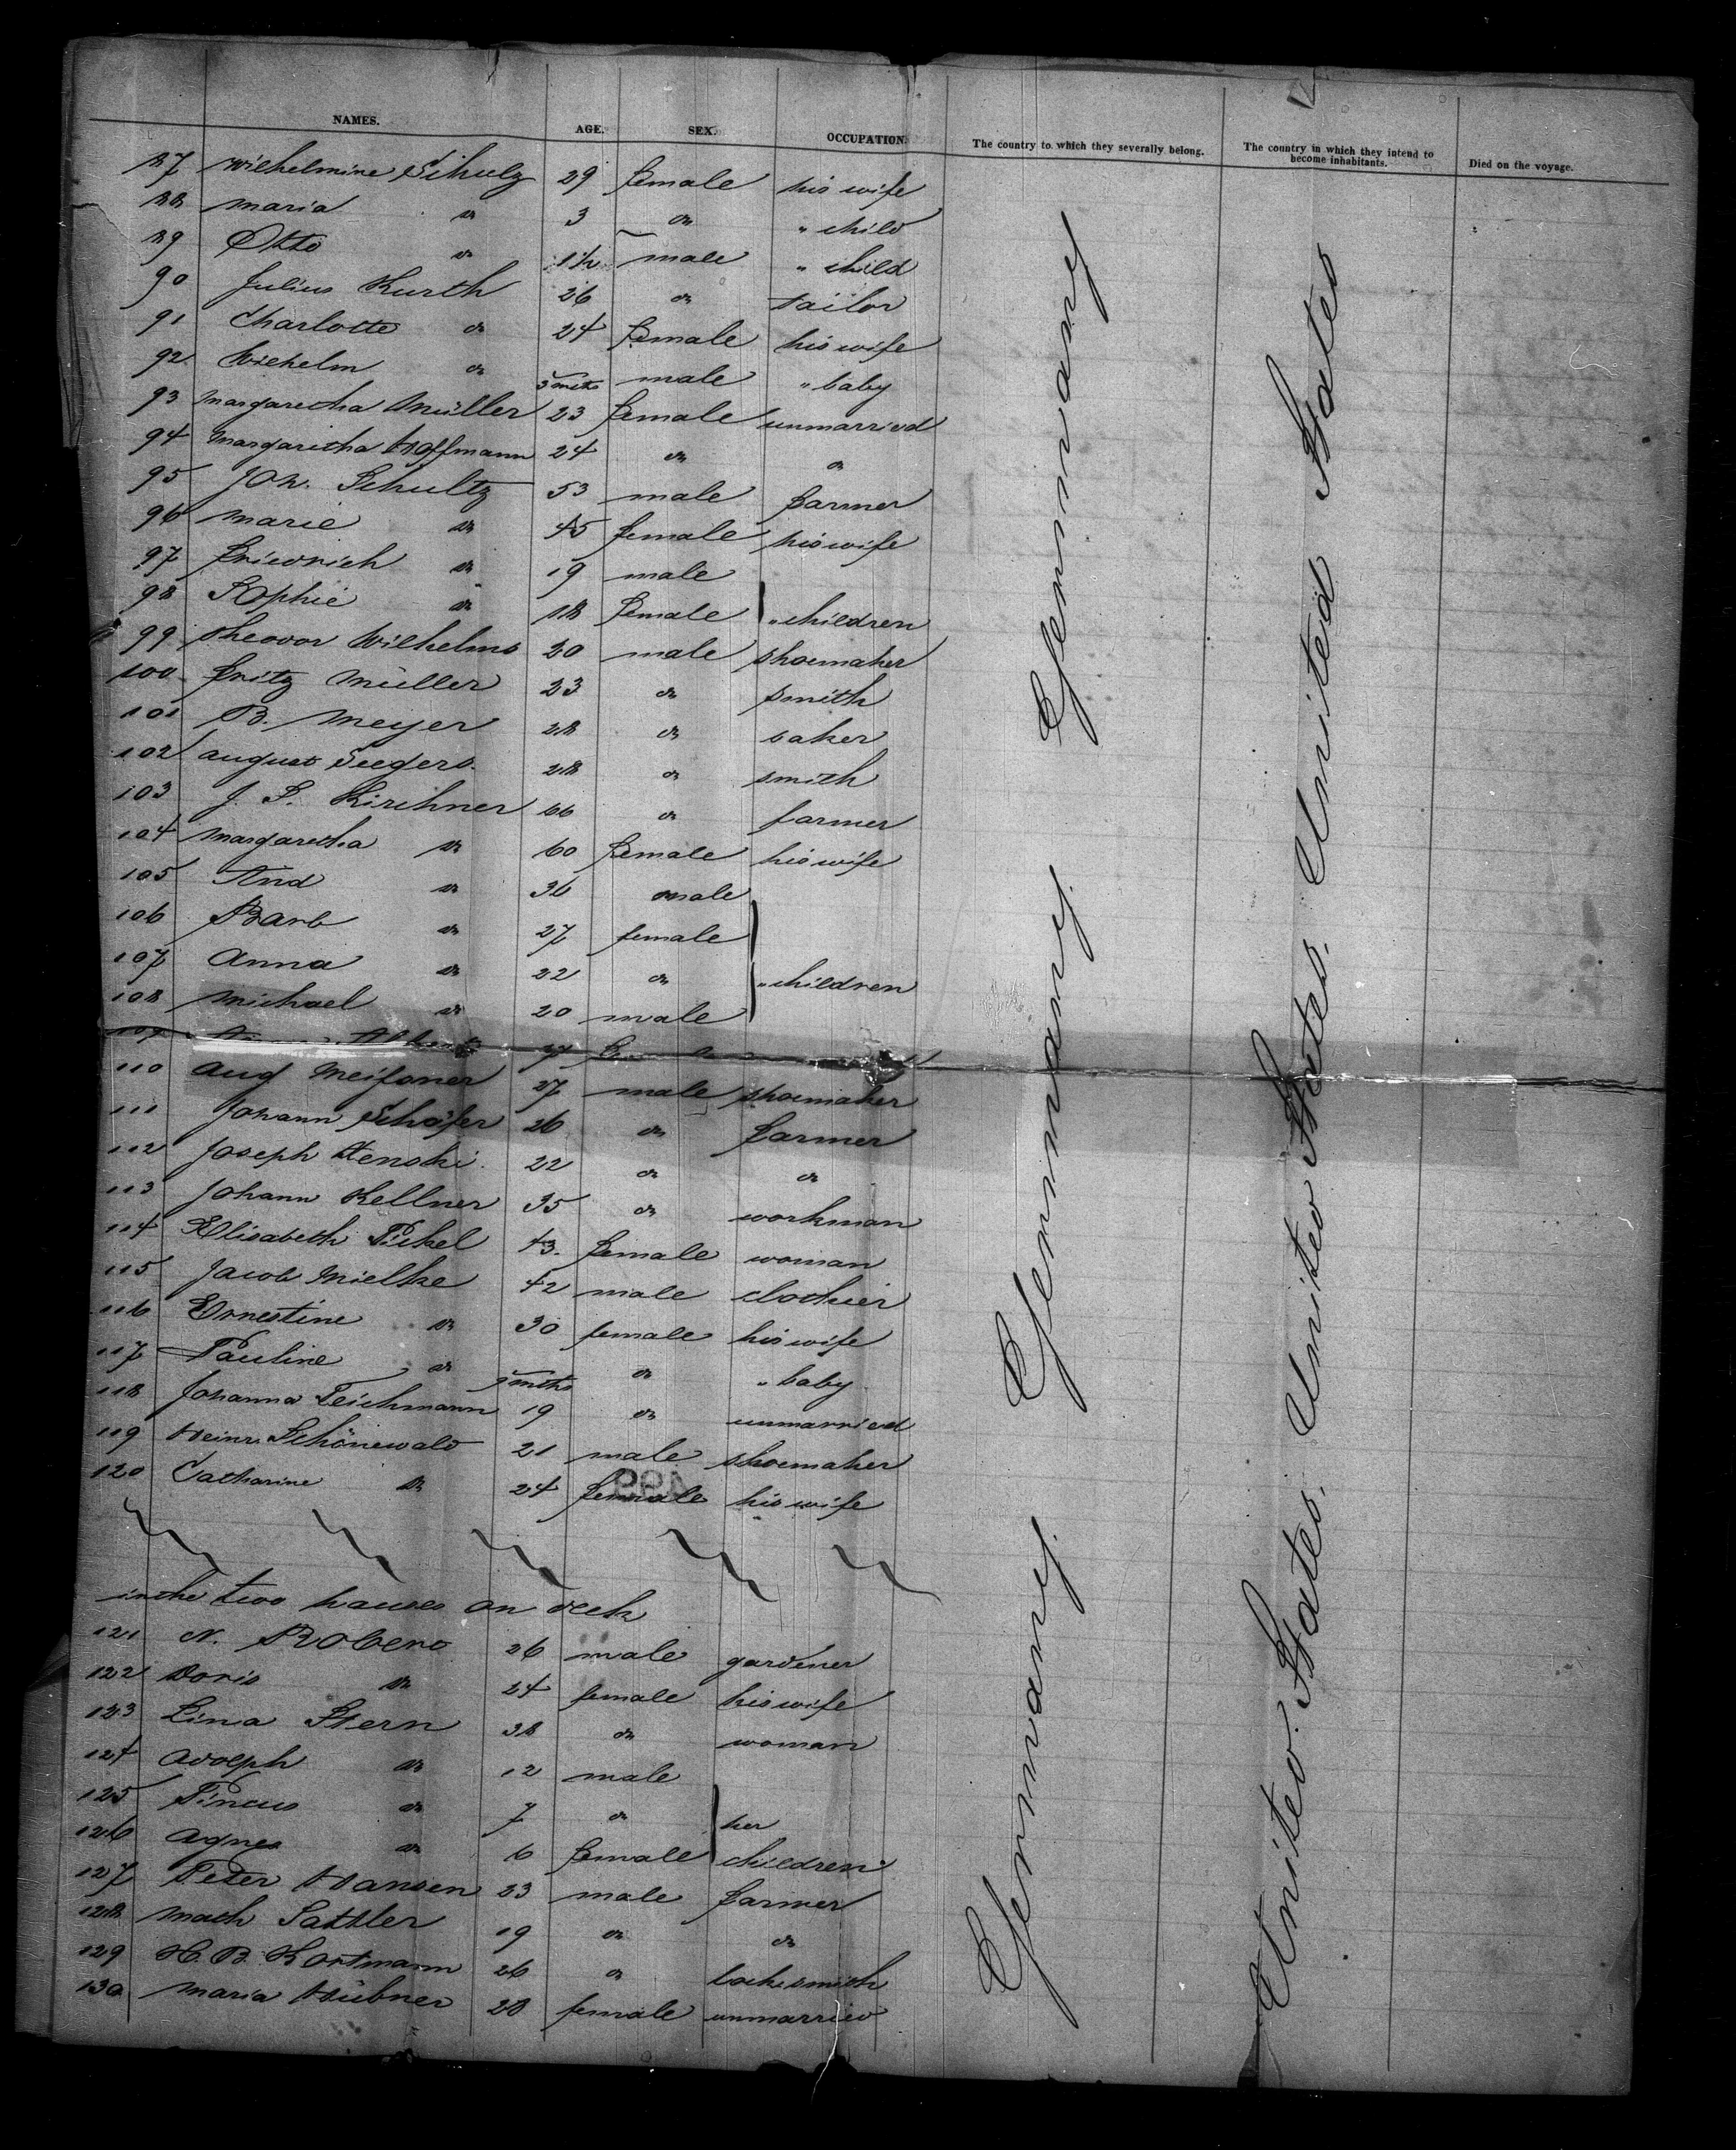 NAMES. AGE. SEX. OCCUPATION. The country to which they severally belong. The country in which they intend to become inhabitants. Died on the voyage.
87 Wilhelmine Schulz 29 female his wife
88 Maria do 3 do " child
89 Otto do 1½ male " child
90 Julius Kurth 26 do tailor
91 Charlotte do 24 female his wife
92 Wilhelm do 5 mths male " baby
93 Margaretha Müller 23 female unmarried
94 Margaretha Hoffmann 24 do do
95 Joh. Schultz 53 male farmer
96 Marie do 45 female his wife
97 Friedrich do 19 male
98 Sophie do 18 female " children
99 Theodor Wilhelms 20 male shoemaker
100 Fritz Müller 23 do smith
101 B. Meyer 28 do baker
102 August Seegers 28 do smith
103 J. S. Kirchner 66 do farmer
104 Margaretha do 60 female his wife
105 And do 36 male
106 Barb do 27 female
107 Anna do 22 do " children
108 Michael do 20 male
109
110 Aug Meissner 27 male shoemaker
111 Johann Schäfer 26 do farmer
112 Joseph Henski 22 do do
113 Johann Kellner 35 do workman
114 Elisabeth Pickel 43 female woman
115 Jacob Mielke 42 male clothier
116 Ernestine do 30 female his wife
117 Pauline do mths do " baby
118 Johanna Teichmann 19 do unmarried
119 Heinr. Schönewald 21 male shoemaker
120 Catharine do 24 female his wife
in the two houses on deck
121 N. Robens 26 male gardener
122 Doris do 24 female his wife
123 Lina Stern 38 do woman
124 Adolph do 12 male
125 Pincus do 7 do her
126 Agnes do 6 female children
127 Peter Hansen 23 male farmer
128 Math Sattler 19 do do
129 H. B. Kortmann 26 do locksmith
130 Maria Hübner 28 female unmarried
Germany. Germany. Germany. Germany
United States. United States. United States. United States